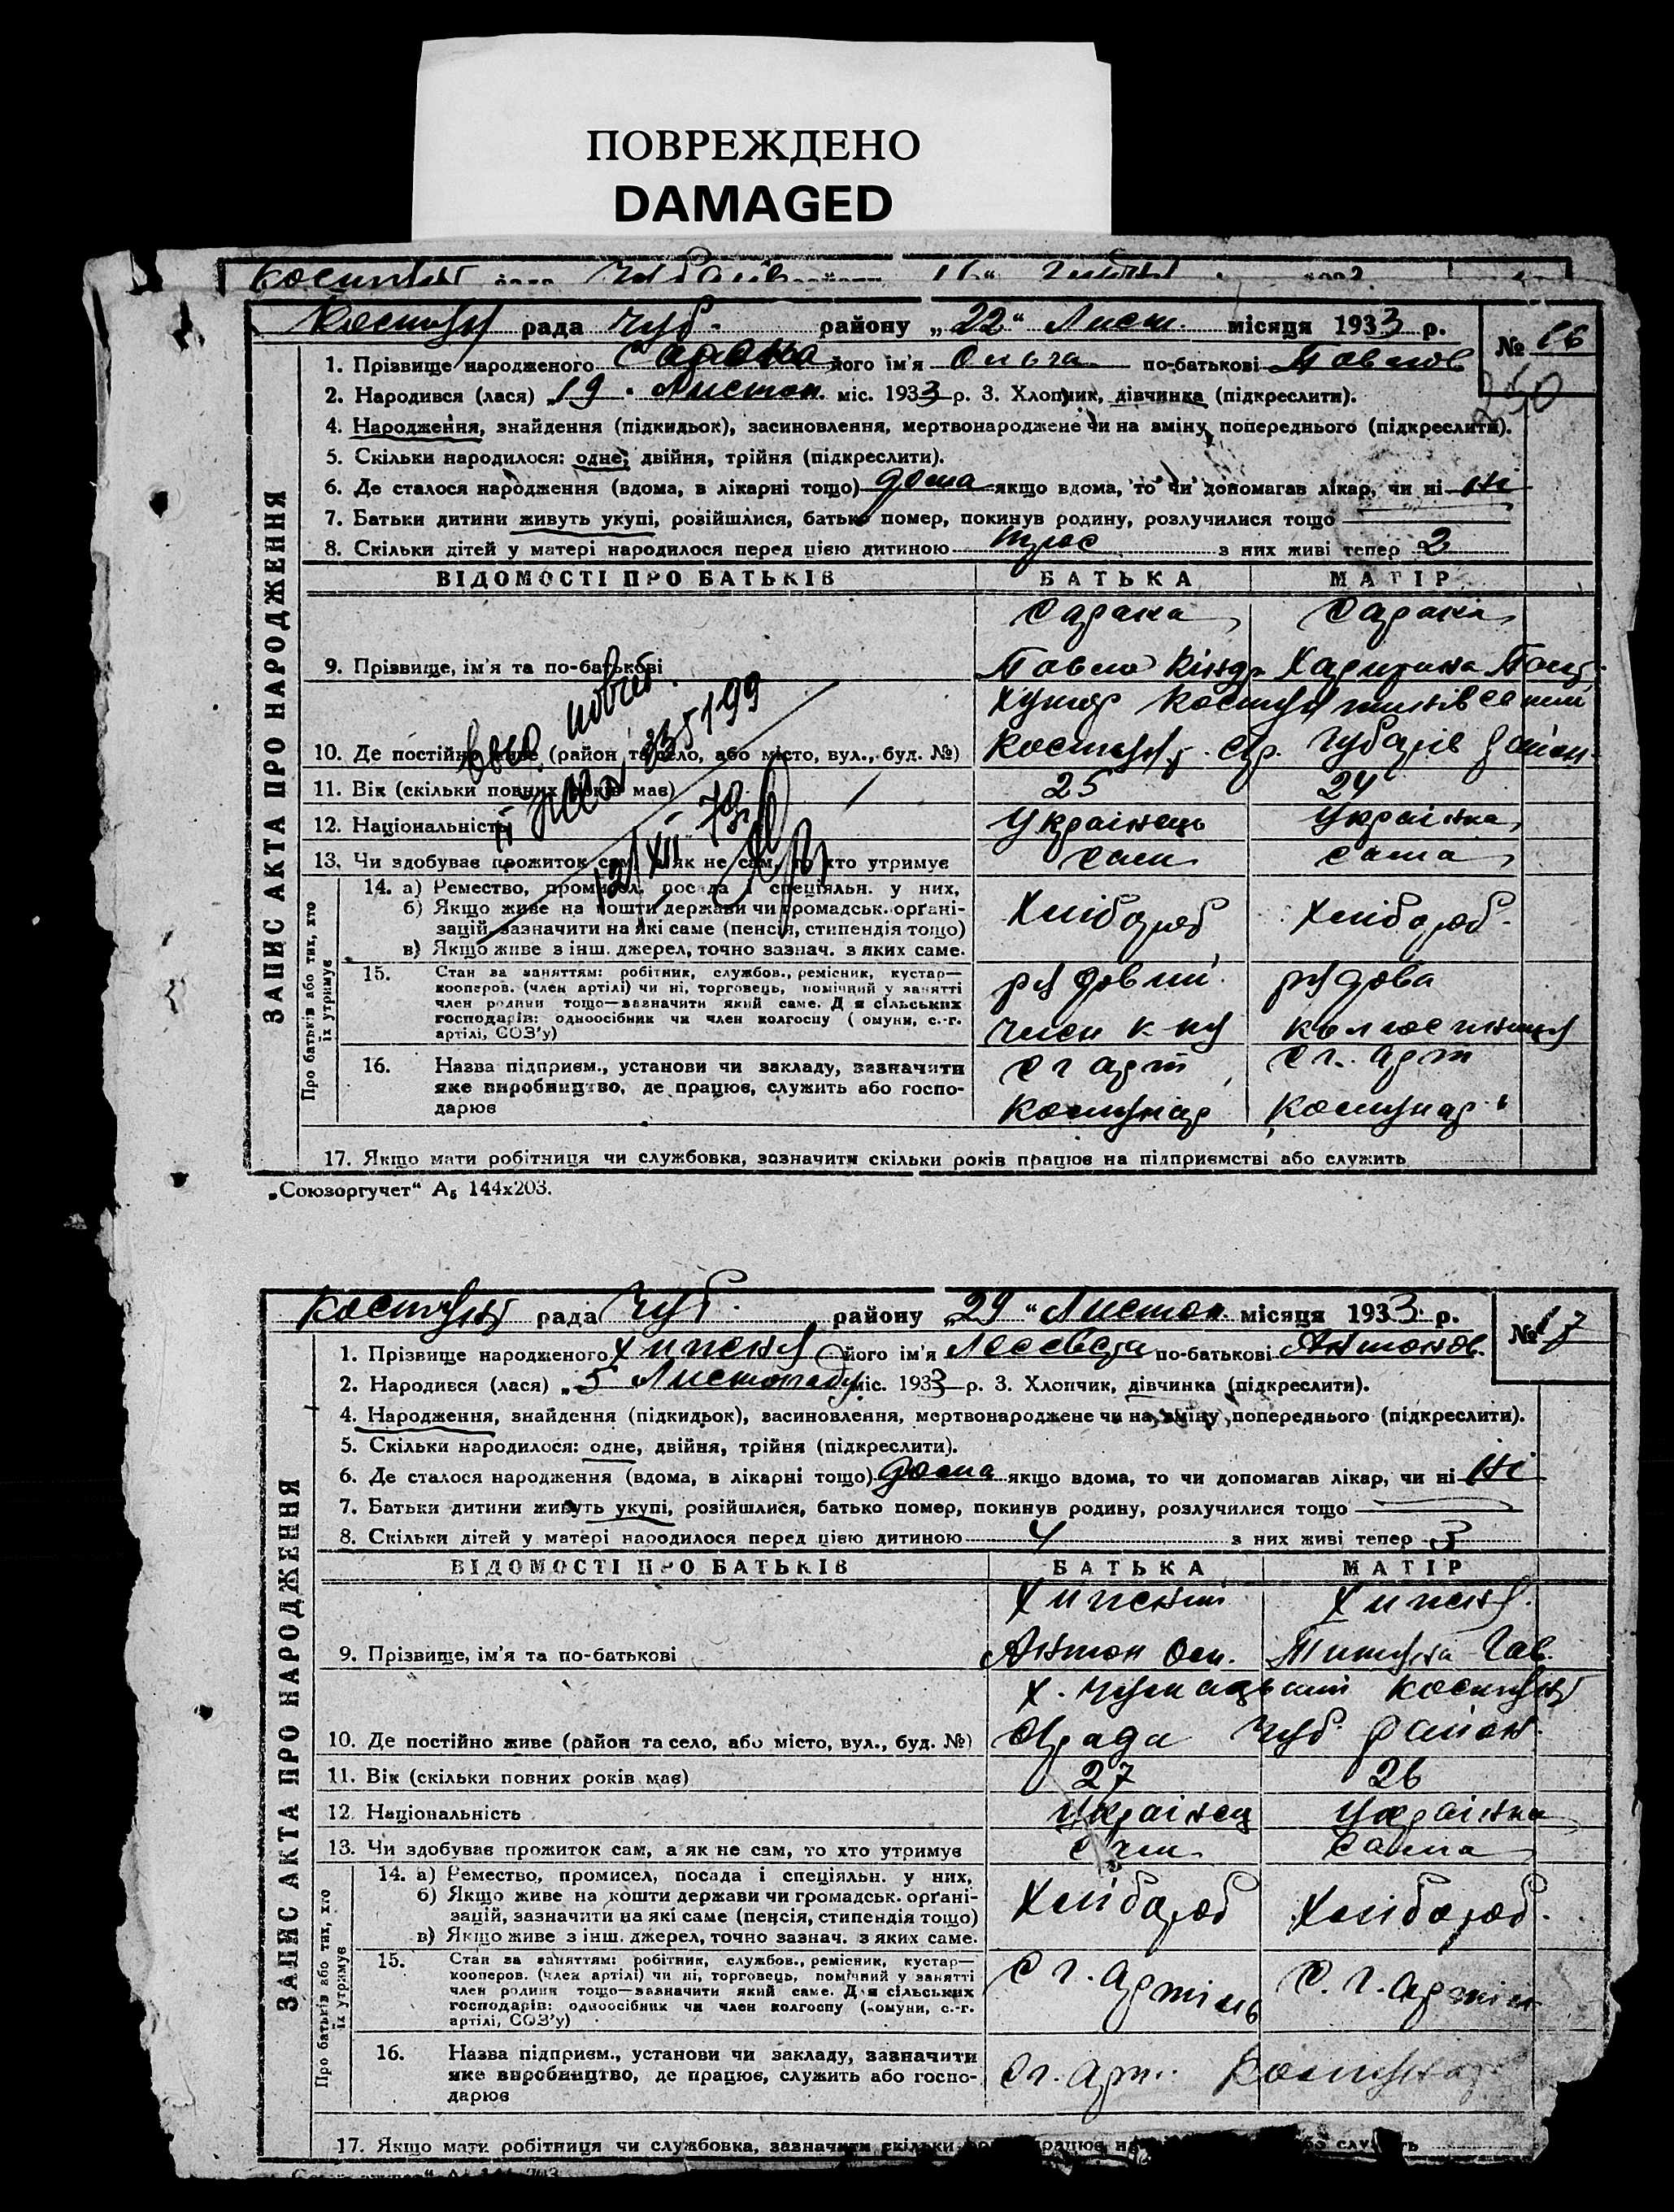 ПОВРЕЖДЕНО
DAMAGED
рада Чуб. району „22“ Лист. місяця 1933 р.
№ 16
250
1. Прізвище народженого Сарана його ім'я Ольга по-батькові Павлов
2. Народився (лася) „19. Листоп. міс. 1933 р. 3. Хлопчик, дівчинка (підкреслити).
4. Народження, знайдення (підкидьок), засиновлення, мертвонароджене чи на зміну попереднього (підкреслити).
5. Скільки народилося: одне, двійня, трійня (підкреслити).
6. Де сталося народження (вдома, в лікарні тощо) дома якщо вдома, то чи допомагав лікар, чи ні ні
7. Батьки дитини живуть укупі, розійшлися, батько помер, покинув родину, розлучилися тощо
8. Скільки дітей у матері народилося перед цією дитиною троє з них живі тепер 2
ЗАПИС АКТА ПРО НАРОДЖЕННЯ
ВІДОМОСТІ ПРО БАТЬКІВ БАТЬКА МАТІР
Сарана Сарана
9. Прізвище, ім'я та по-батькові Павло Кіндр Харитина
Хутор
10. Де постійно живе (район та село, або місто, вул., буд. №) с.р. район
11. Вік (скільки повних років має) 25 24
12. Національність Українець Українка
13. Чи здобуває прожиток сам, а як не сам, то хто утримує сам сама
335199
Про батьків або тих, хто їх утримує
14. а) Ремество, промисел, посада і спеціяльн. у них,
б) Якщо живе на кошти держави чи громадськ. орґані-
зацій, зазначити на які саме (пенсія, стипендія тощо)
в) Якщо живе з інш. джерел, точно зазнач. з яких саме.
Хлібороб Хлібороб.
15. Стан за заняттям: робітник, службов., ремісник, кустар—
кооперов. (член артілі) чи ні, торговець, помічний у занятті
член родини тощо—зазначити який саме. Для сільських
господарів: одноосібник чи член колгоспу (комуни, с.-г.
артілі, СОЗ'у)
рядовий рядова
член к-пу колгоспниця
16. Назва підприєм., установи чи закладу, зазначити
яке виробництво, де працює, служить або госпо-
дарює
с г арт с г. арт
Комунар Комунар
17. Якщо мати робітниця чи службовка, зазначити скільки років працює на підприємстві або служить
„Союзоргучет“ А5 144х203.
рада Чуб. району „29“ Листоп. місяця 1933 р.
№ 17
1. Прізвище народженого його ім'я по-батькові Антонов.
2. Народився (лася) „5 Листопаду міс. 1933 р. 3. Хлопчик, дівчинка (підкреслити).
4. Народження, знайдення (підкидьок), засиновлення, мертвонароджене чи на зміну попереднього (підкреслити).
5. Скільки народилося: одне, двійня, трійня (підкреслити).
6. Де сталося народження (вдома, в лікарні тощо) дома якщо вдома, то чи допомагав лікар, чи ні ні
7. Батьки дитини живуть укупі, розійшлися, батько помер, покинув родину, розлучилися тощо
8. Скільки дітей у матері народилося перед цією дитиною 4 з них живі тепер 3
ЗАПИС АКТА ПРО НАРОДЖЕННЯ
ВІДОМОСТІ ПРО БАТЬКІВ БАТЬКА МАТІР
9. Прізвище, ім'я та по-батькові Антон Гав.
10. Де постійно живе (район та село, або місто, вул., буд. №) с/рада Чуб. район.
11. Вік (скільки повних років має) 27 26
12. Національність Українец Українка
13. Чи здобуває прожиток сам, а як не сам, то хто утримує сам сама
Про батьків або тих, хто їх утримує
14. а) Ремество, промисел, посада і спеціяльн. у них,
б) Якщо живе на кошти держави чи громадськ. орґані-
зацій, зазначити на які саме (пенсія, стипендія тощо)
в) Якщо живе з інш. джерел, точно зазнач. з яких саме.
Хлібороб Хлібороб.
15. Стан за заняттям: робітник, службов., ремісник, кустар—
кооперов. (член артілі) чи ні, торговець, помічний у занятті
член родини тощо—зазначити який саме. Для сільських
господарів: одноосібник чи член колгоспу (комуни, с.-г.
артілі, СОЗ'у)
с г. артіль с. г. артіл
16. Назва підприєм., установи чи закладу, зазначити
яке виробництво, де працює, служить або госпо-
дарює
с г. арт. Комунар
17. Якщо мати робітниця чи службовка, зазначити скільки працює